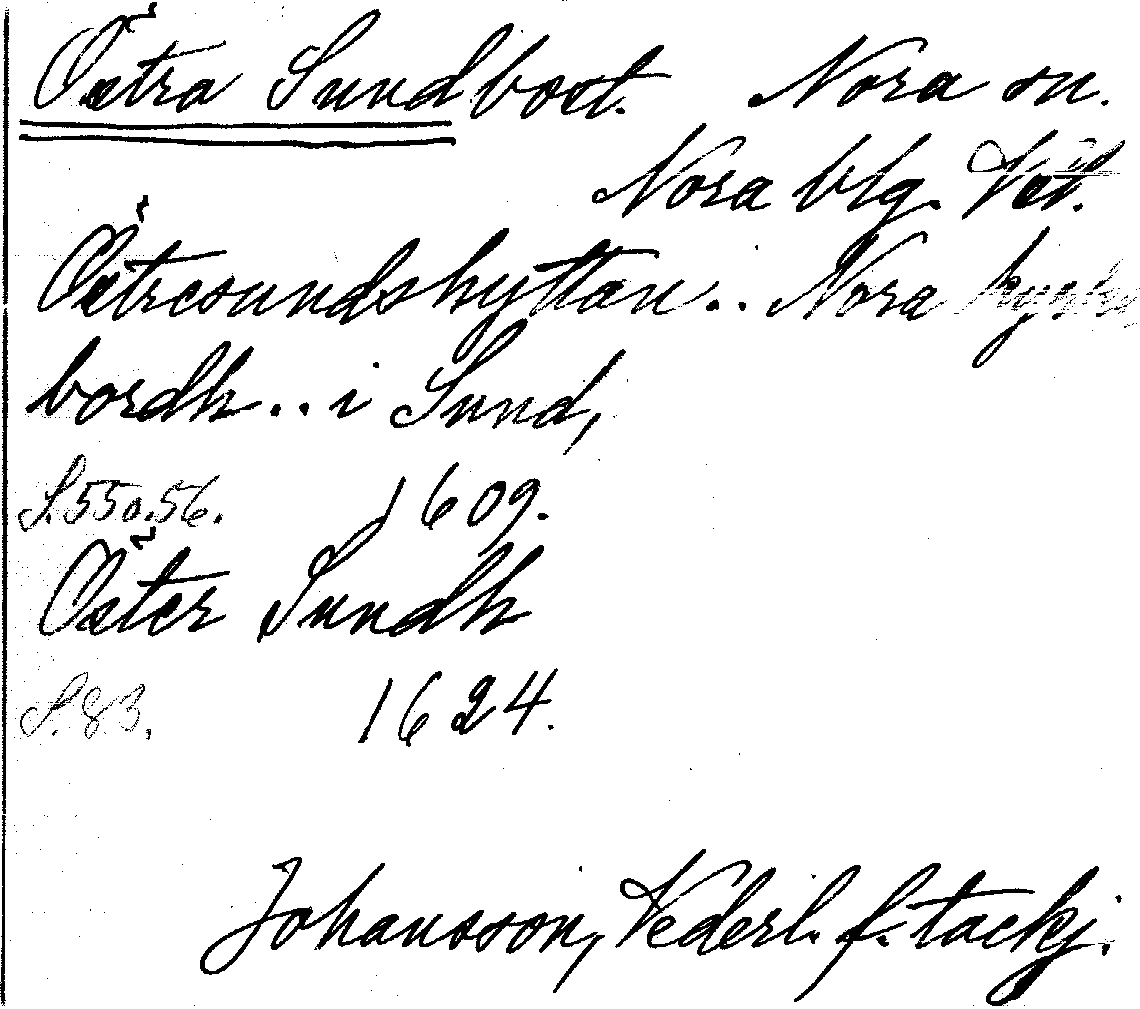 Östra Sund bost. Nora sn.
Nora blg. Vstl.
Östresundshyttan.. Nora kyrke
bordh.. i Sund,
S. 55 o. 56. 1609.
Öster Sundh
S. 83. 1624.
Johansson, Vederl. f. tackj.